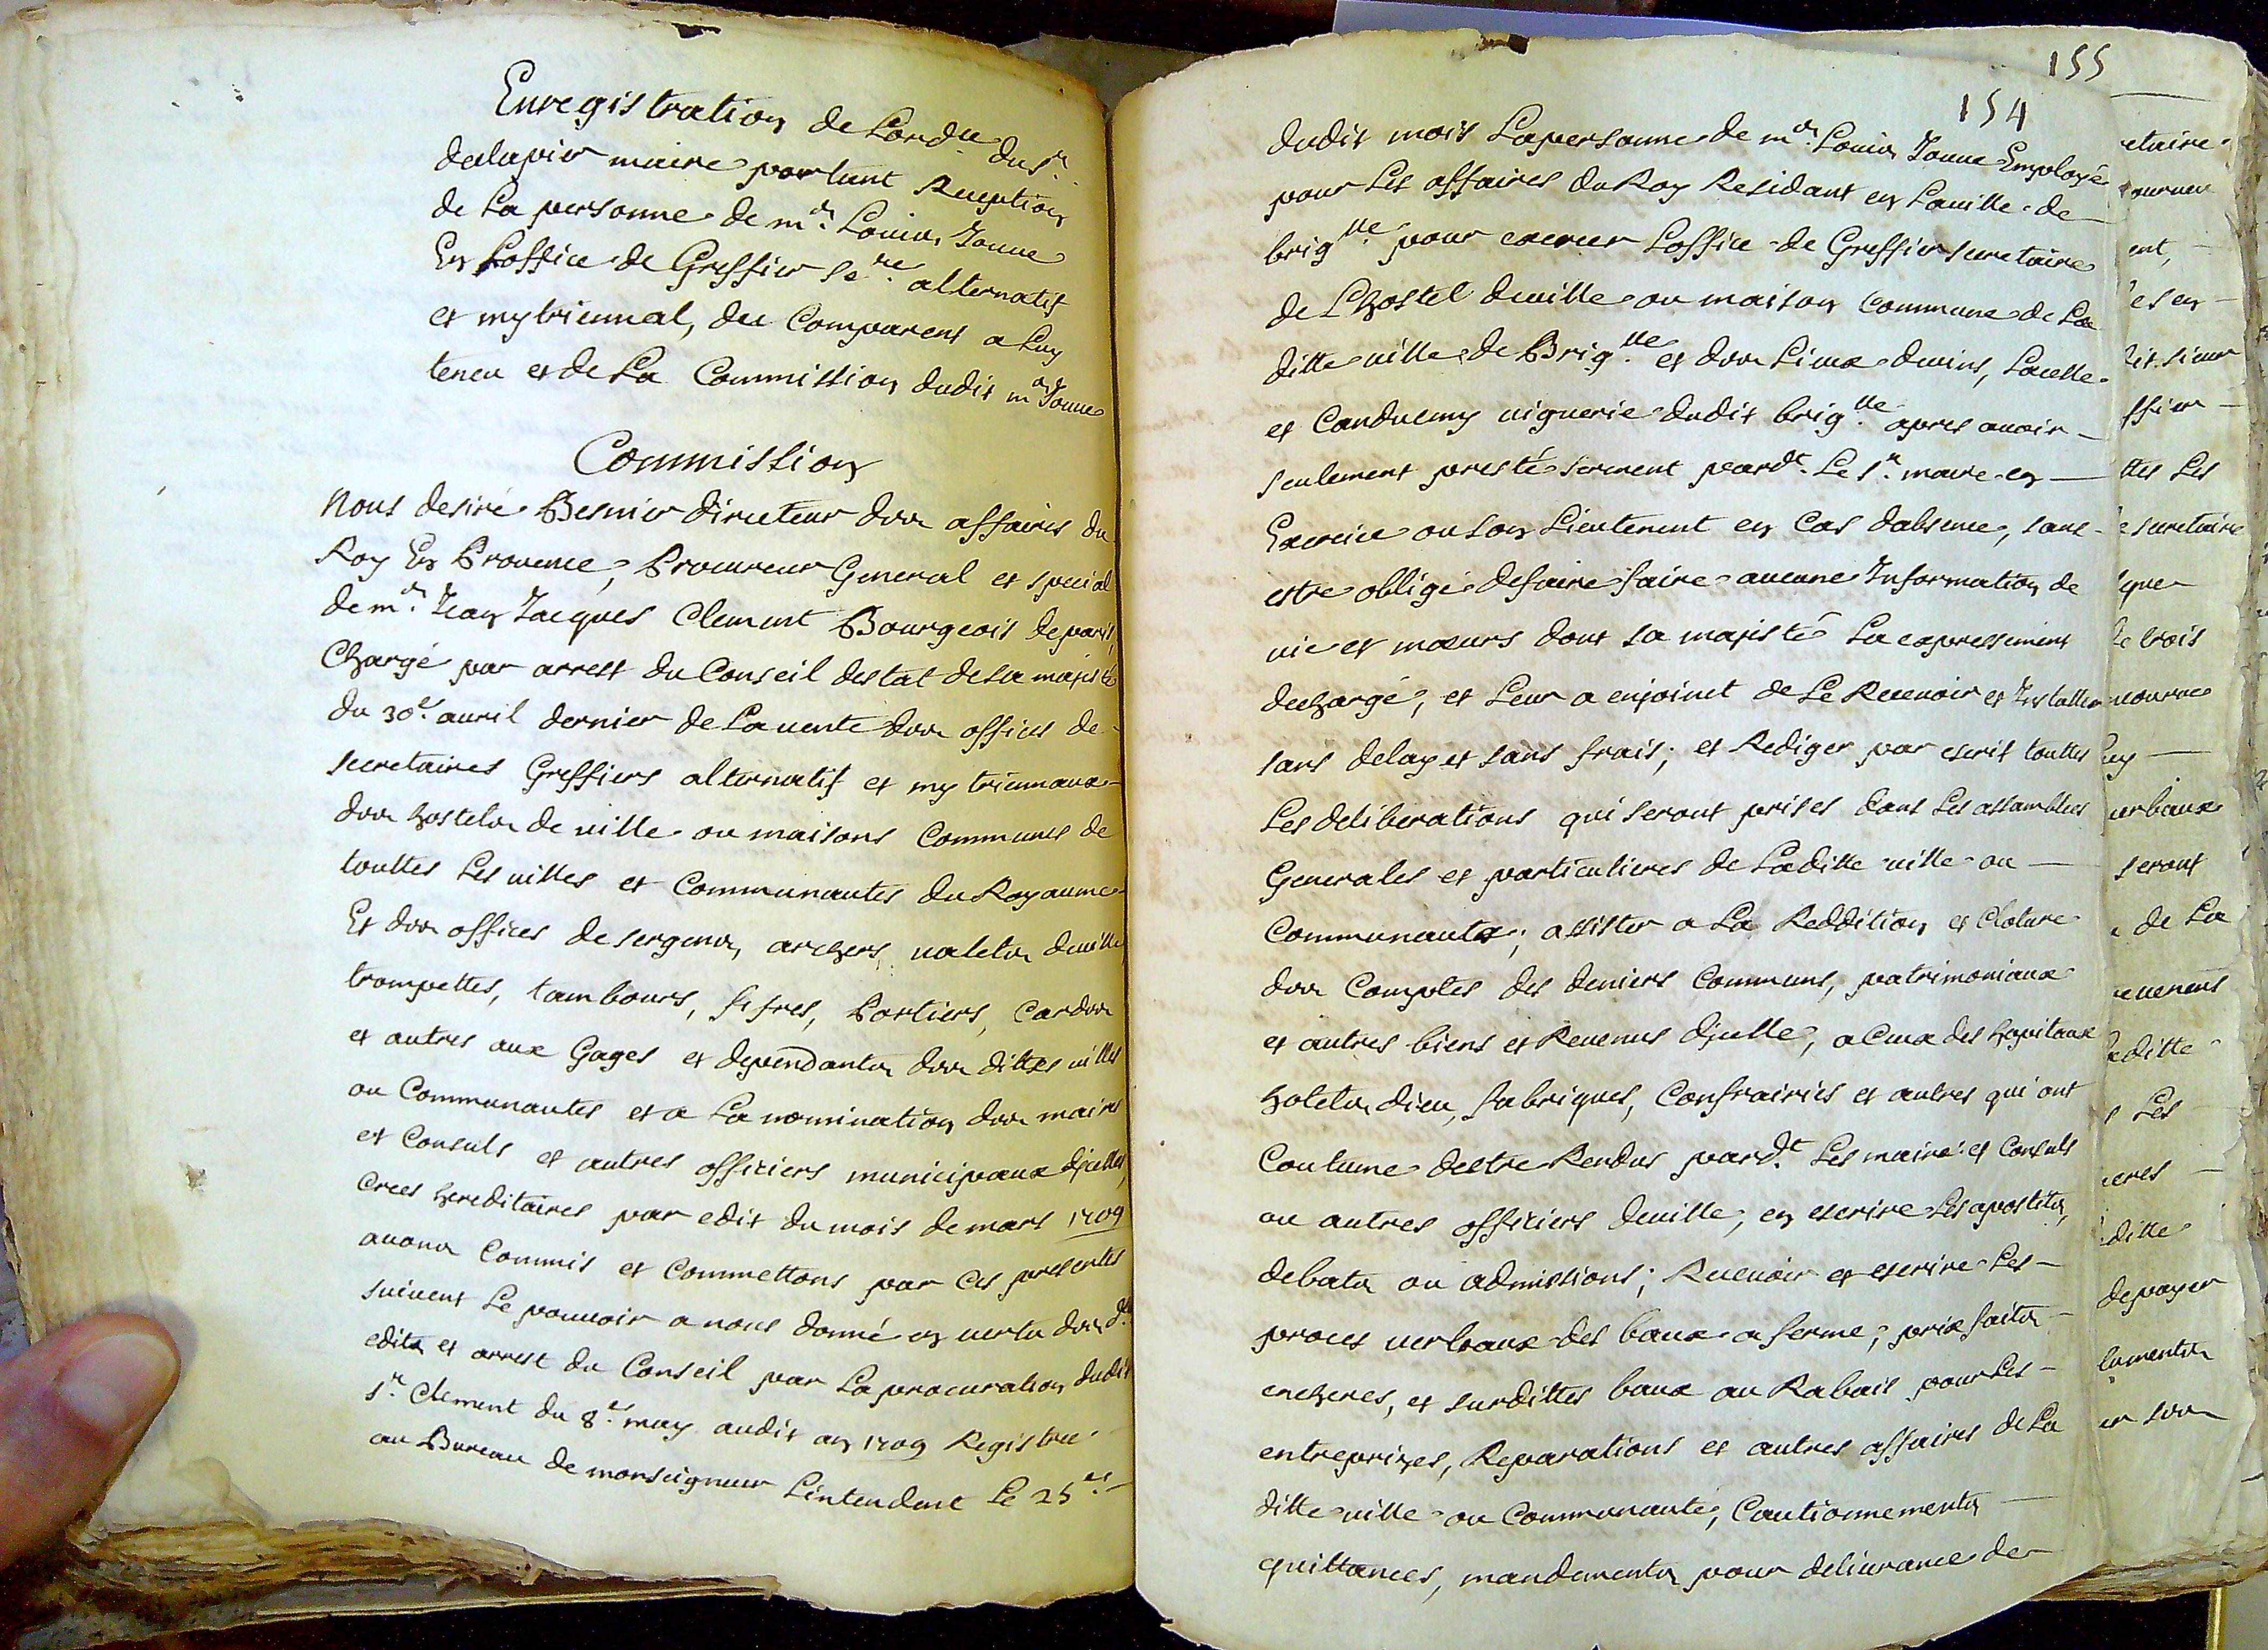 Enregistration de Lordce du Sr.
delapier maire portant Reception
de La personne de mr. Louis Jonne
En Loffice de Greffier Sere. alternatif
et mytriennal, du Comparent a Luy
teneu et de La Commission dudit me Jonne
Commission
Nous desiré Besnier directeur des affaires du
Roy En Provence, Procureur General et special
de mr. Jean Jacques Clement Bourgeois deparis,
Chargé par arrest du Conseil destat desa majesté
du 30e. auril dernier de Lauente des offices de
secretaires Greffiers alternatif et my triennaux
des hostels de uille ou maisons Communes de
touttes Les uilles et Communautes du Royaume
Et des offices de sergens, archers ualets deuille
trompettes, tambours, fifres, Portiers, Cardes
et autres aux Gages et dependants des dittes uilles
ou Communautes et a La nomination des maires
et Consuls et autres officiers municipaux djcelles,
Crees hereditaires par edit du mois de mars 1709
auons Commis et Commettons par Ces presentes
suiuent Le pouuoir a nous donné en uertu des dts.
edits et arrest du Conseil par La procuration dudit
sr. Clement du 8e. may audit an 1709 Registree
au Bureau de monseigneur Lintendent Le 25es.
155
154
dudit mois Lapersonne de mr. Louis Jonne Employé
pour Les affaires du Roy Residant en Lauille de
briglle. pour exercer Loffice de Greffier secretaire
de Lhostel deuille ou maison Commune de La
ditte uille de Briglle. et des Lieux deuins, Lacelle
et Canduemy uiguerie dudit briglle. apres auoir
seulement presté serment pardt. Le sr. maire en
Exercice ou son Lieutenent en Cas dabsence, sans
estre obligé defaire faire aucune Information de
uie et mœurs dont sa majesté La expressement
dechargé, et Leur a enjoinct de Le Receuoir et Installer
sans delay et sans frais; et Rediger par escrit touttes
Les deliberations qui seront prises dans Les assamblees
Generales et particulieres de Laditte uille ou
Communauté; assister a La Reddition et Cloture
des Comptes des deniers Communs, patrimoniaux
et autres biens et Reuenus djcelle, a Ceux des hopitaux
hotels dieu, fabriques, Confrairies et autres qui ont
Coutume destre Rendus pardt. Les maire et Consuls
ou autres officiers deuille, en escrire Les apostils,
debats ou admissions; Receuoir et escrire Les
proces uerbaux des baux a ferme, prix faits
encheres, et surdittes baux au Rabais pour Les
entreprizes, Reparations et autres affaires de La
ditte uille ou Communauté, Cautionnements
quittances, mandements pour deliurance de